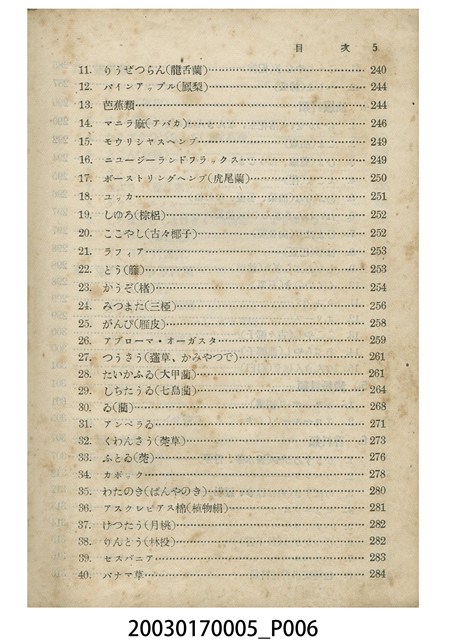 目次 5
11. りうぜつらん(龍舌蘭) 240
12. パインアップル(鳳梨) 244
13. 芭蕉類 244
14. マニラ麻(アバカ) 246
15. モウリシヤスヘンプ 249
16. ニユージーランドフラックス 249
17. ボーストリングヘンプ(虎尾蘭) 250
18. ユッカ 251
19. しゆろ(棕梠) 252
20. ここやし(古々椰子) 252
21. ラフィア 253
22. とう(籐) 253
23. かうぞ(楮) 254
24. みつまた(三椏) 256
25. がんぴ(雁皮) 258
26. アブローマ・オーガスタ 259
27. つうさう(蓪草、かみやつで) 261
28. たいかふゐ(大甲藺) 261
29. しちたうゐ(七島藺) 264
30. ゐ(藺) 268
31. アンペラゐ 271
32. くわんさう(莞草) 273
33. ふとゐ(莞) 276
34. カポック 278
35. わたのき(ぱんやのき) 280
36. アスクレピアス棉(植物絹) 281
37. げつたう(月桃) 282
38. りんとう(林投) 282
39. セスバニア 283
40. パナマ草 284
20030170005_P006